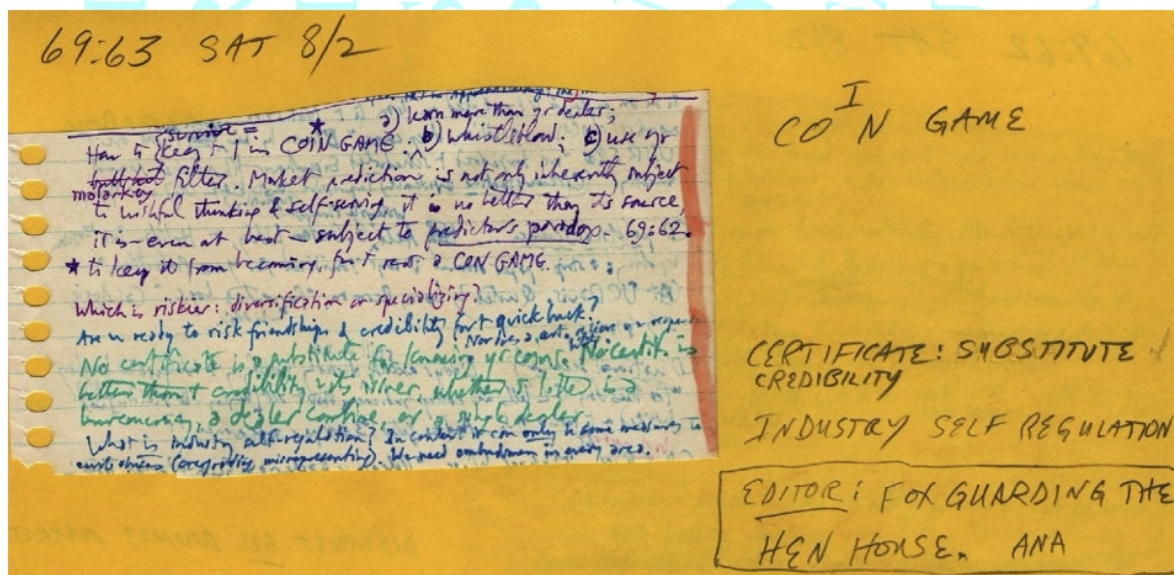 69:63 SAT 8/2
a) learn more than yr dealer;
survive =
How to keep + I in COIN GAME*: b) whistleblow; c) use yr
molarkey filter. Market prediction is not only inherently subject
to wishful thinking & self-serving it is no better than its source,
it is - even at best - subject to predictor's paradox. 69:62.
* to keep it from becoming, for rest a CON GAME.
Which is riskier: diversification or specializing?
Are u ready to risk friendships & credibility for quick buck?
No certificate is a substitute for knowing yr coins. No certif. is
better than credibility its issuer, whether latter is a
bureaucracy, a dealer combine, or a single dealer.
What is industry self-regulation? In context it can only be some measures to
curb abuses (overgrading, misrepresenting). We need ombudsmen in every area.
I
CO N GAME
CERTIFICATE: SUBSTITUTE
CREDIBILITY
INDUSTRY SELF REGULATION
EDITOR: FOX GUARDING THE
HEN HOUSE. ANA